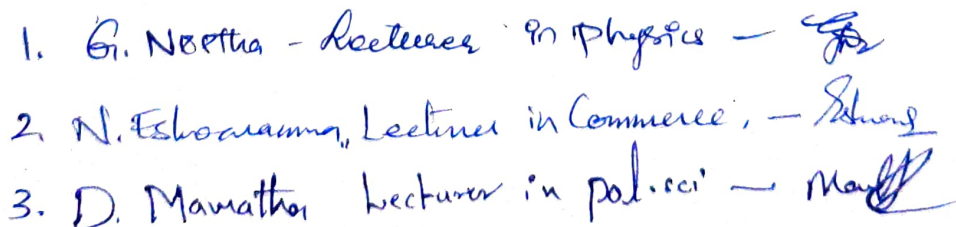 1. G. Neetha - Lecturer in physics -
2. N. Eshwaramma, Lecturer in Commerce, -
3. D. Mamatha Lecturer in pol.sci -